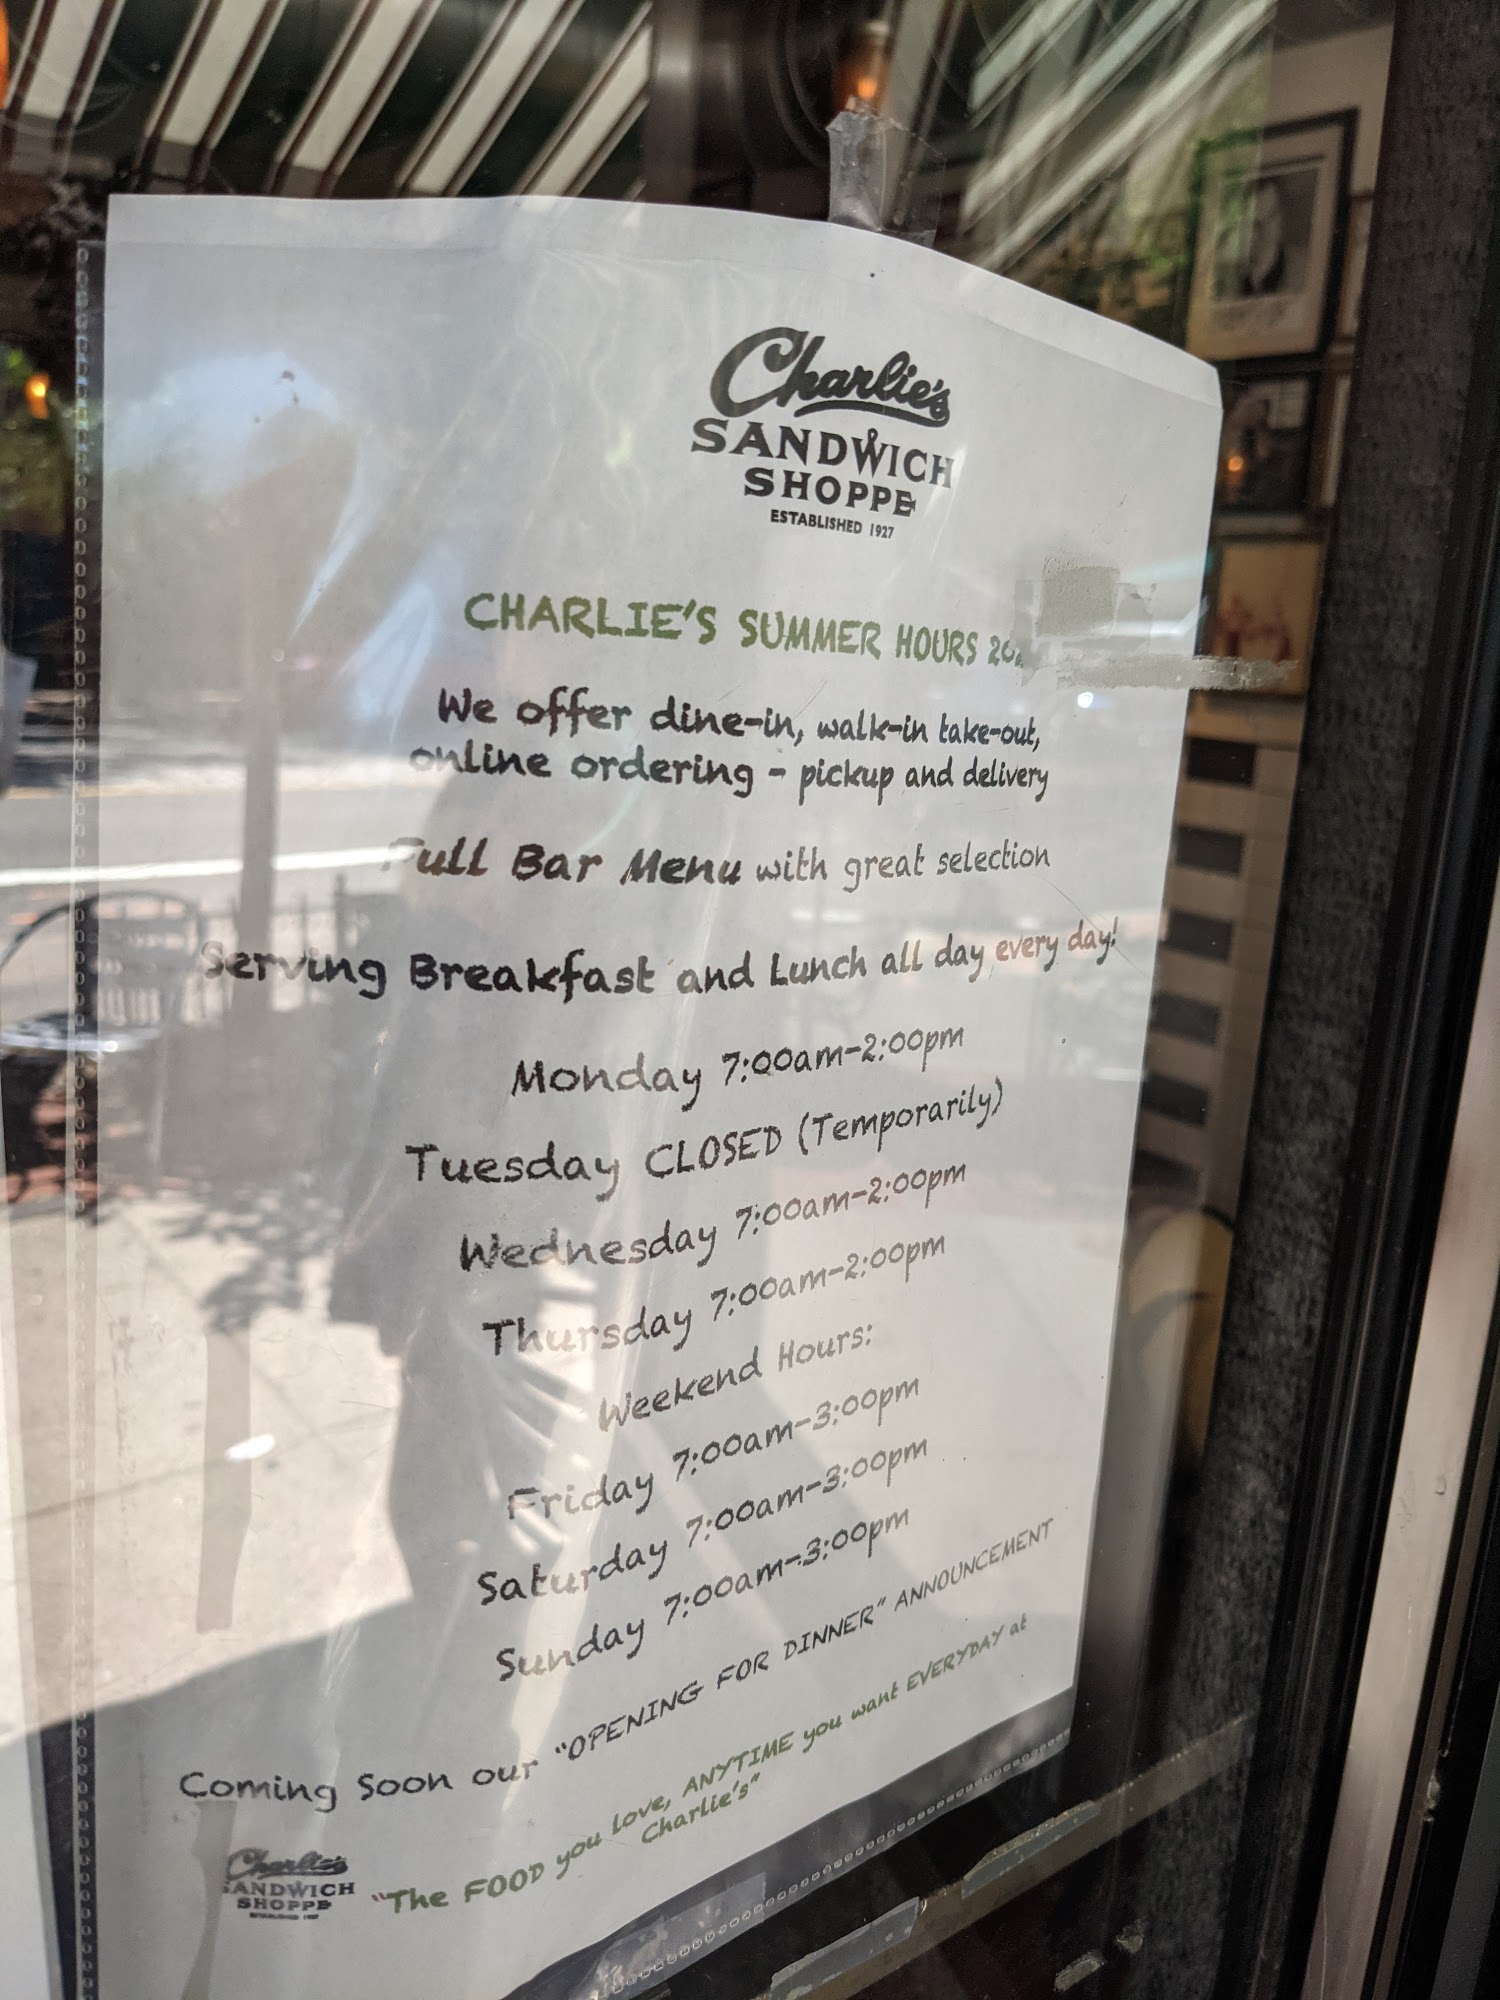 Charlie's
SANDWICH
SHOPPE
ESTABLISHED 1927
CHARLIE'S SUMMER HOURS
We offer dine-in, walk-in take-out,
online ordering - pickup and delivery
Full Bar Menu with great selection
Serving Breakfast and Lunch all day every day!
Monday 7:00am-2:00pm
Tuesday CLOSED (Temporarily)
Wednesday 7:00am-2:00pm
Thursday 7:00am-2:00pm
Weekend Hours:
Friday 7:00am-3:00pm
Saturday 7:00am-3:00pm
Sunday 7:00am-3:00pm
Coming Soon our "OPENING FOR DINNER" ANNOUNCEMENT
"The FOOD you love, ANYTIME you want EVERYDAY at
Charlie's"
Charlie's
SANDWICH
SHOPPE
ESTABLISHED 1927